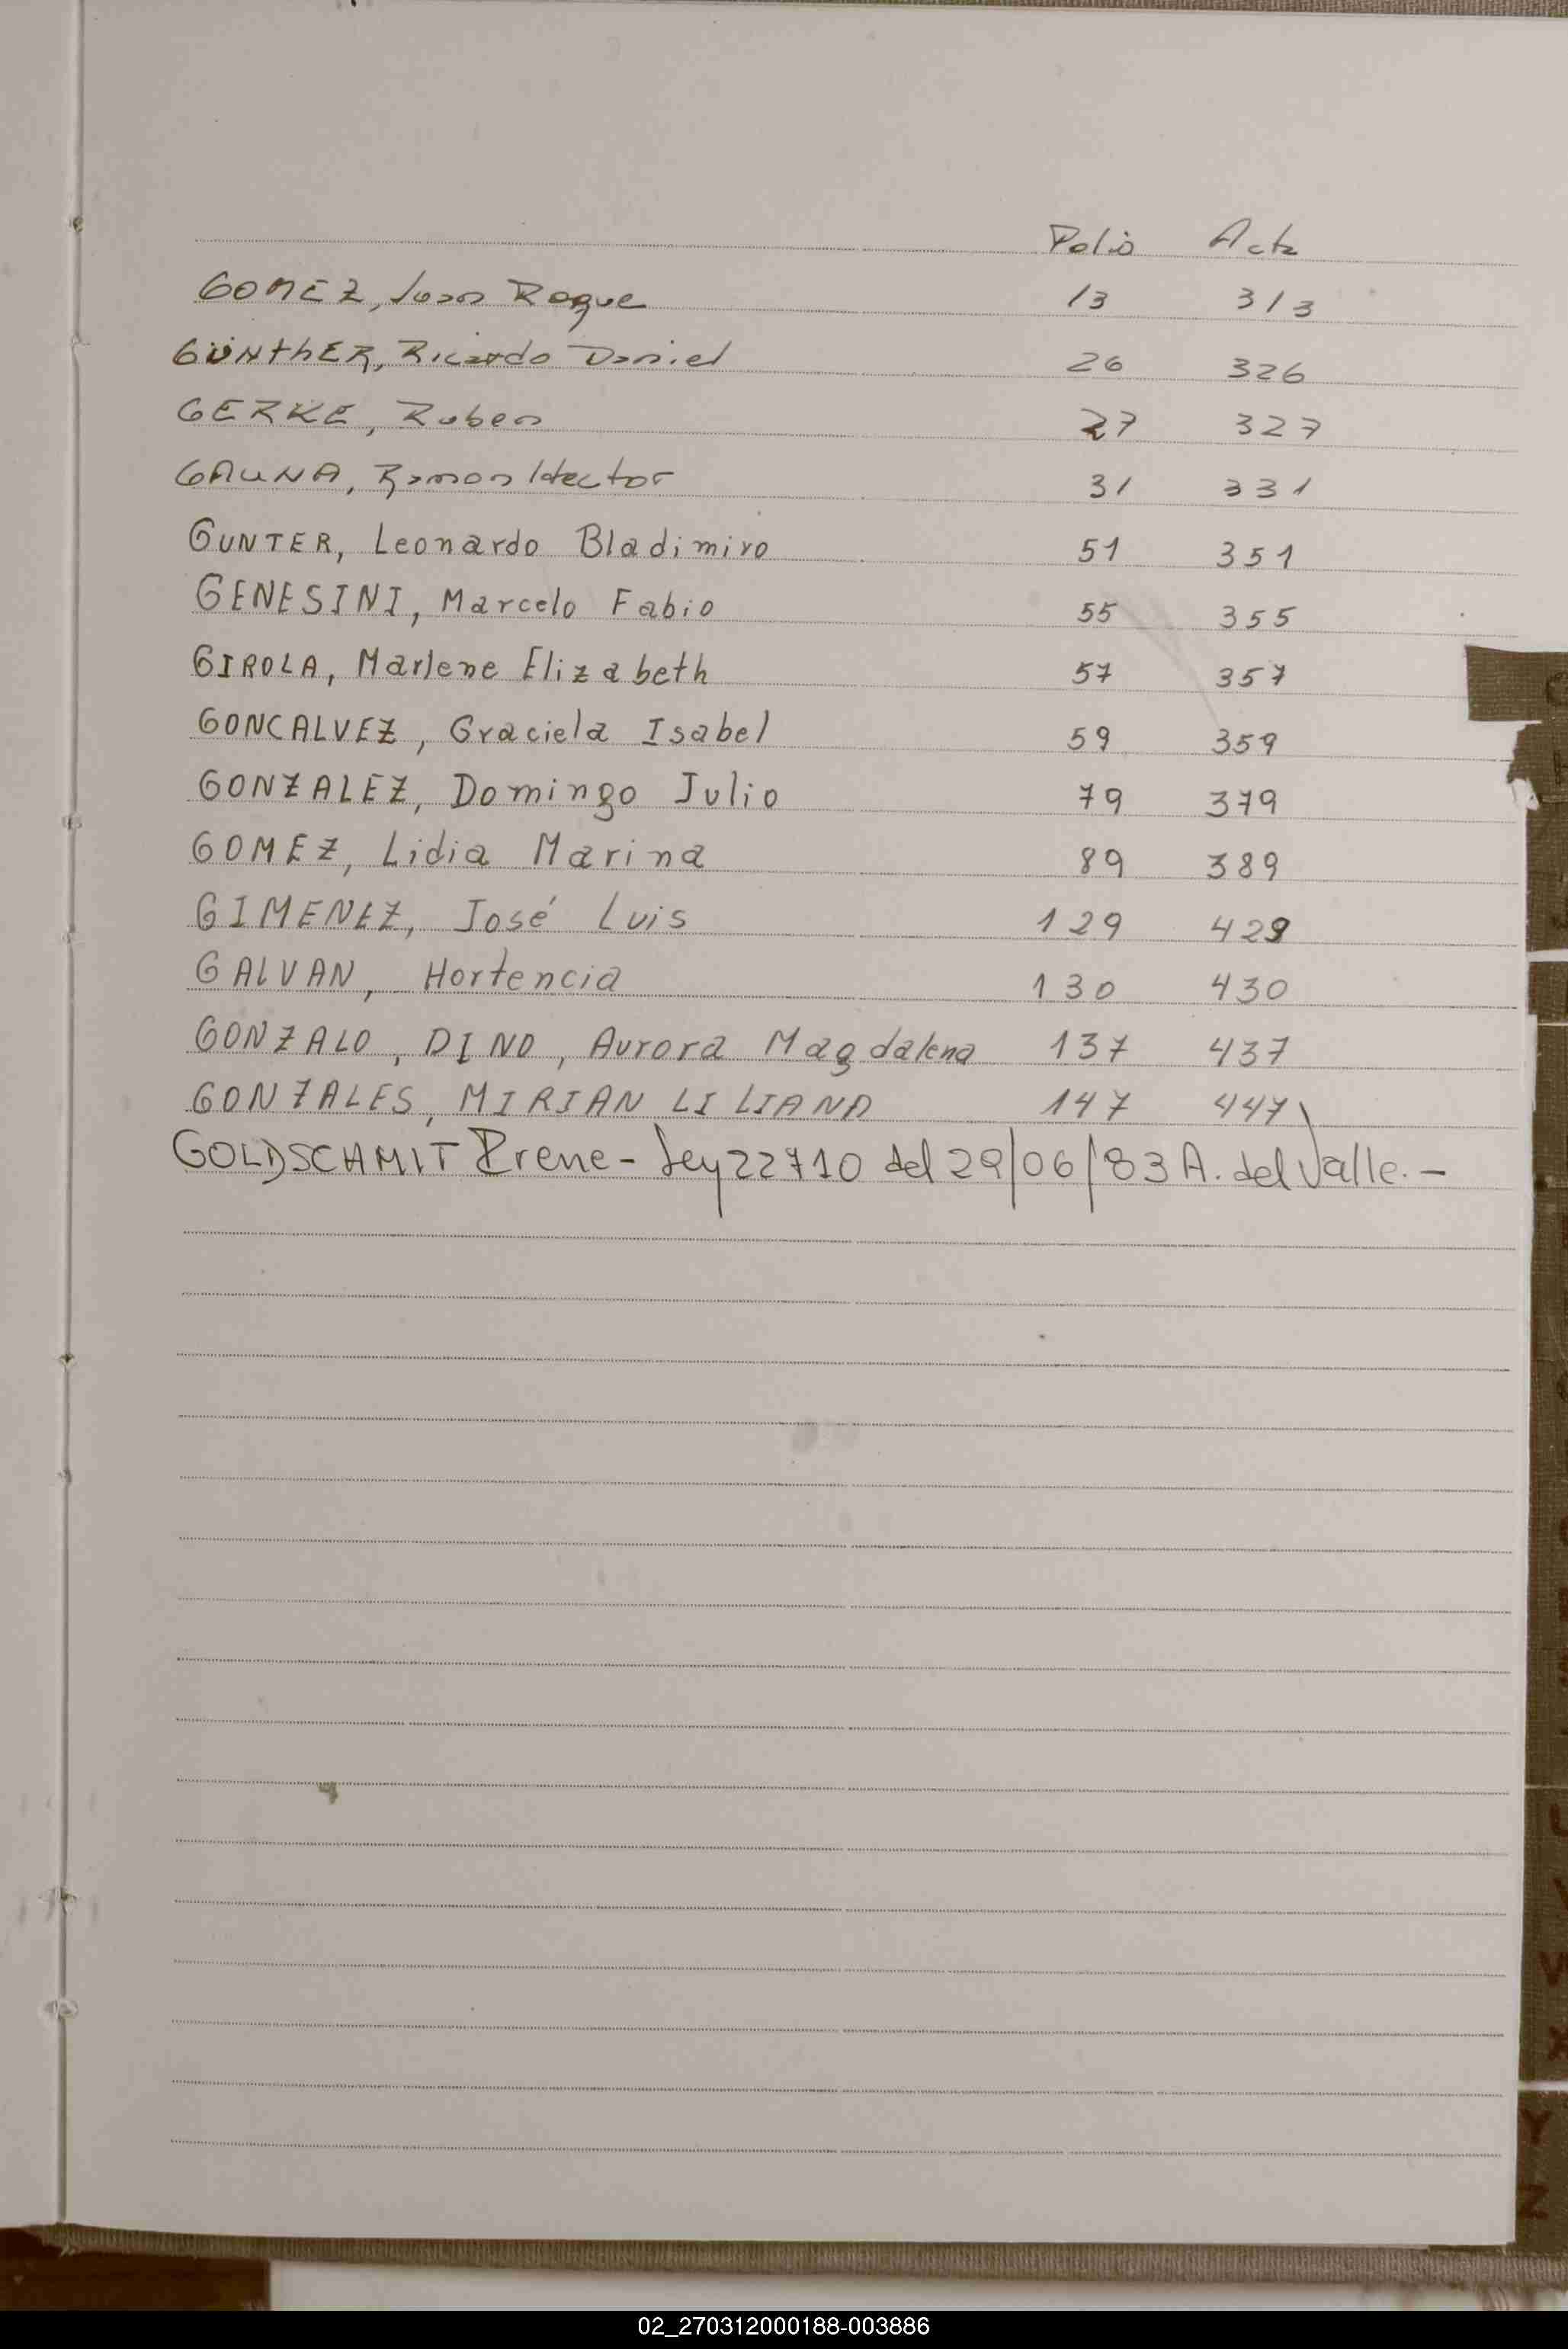 Folio Acta
GOMEZ, Juan Roque 13 313
GÜNTHER, Ricardo Daniel 26 326
GERKE, Ruben 27 327
GAUNA, Ramon Hector 31 331
GUNTER, Leonardo Bladimiro 51 351
GENESINI, Marcelo Fabio 55 355
GIROLA, Marlene Elizabeth 57 357
GONCALVEZ, Graciela Isabel 59 359
GONZALEZ, Domingo Julio 79 379
GOMEZ, Lidia Marina 89 389
GIMENEZ, José Luis 129 429
GALVAN, Hortencia 130 430
GONZALO, DINO, Aurora Magdalena 137 437
GONZALES, MIRIAN LILIANA 147 447
GOLDSCHMIT Irene - Ley 22710 del 29/06/83 A. del Valle. -
V
X
Y
Z
02_270312000188-003886